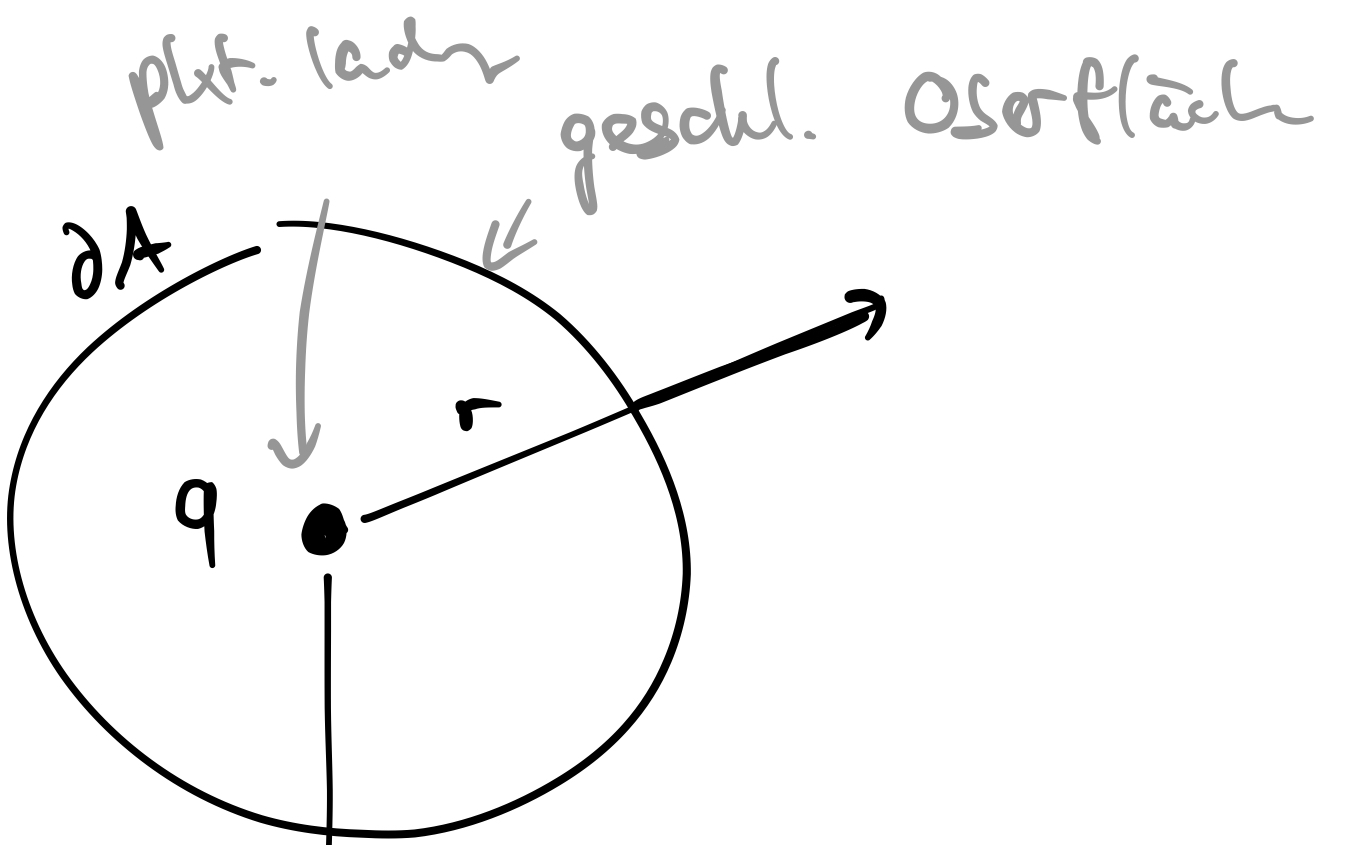 pkt. ladg
geschl. Oberfläche
∂A
r
q